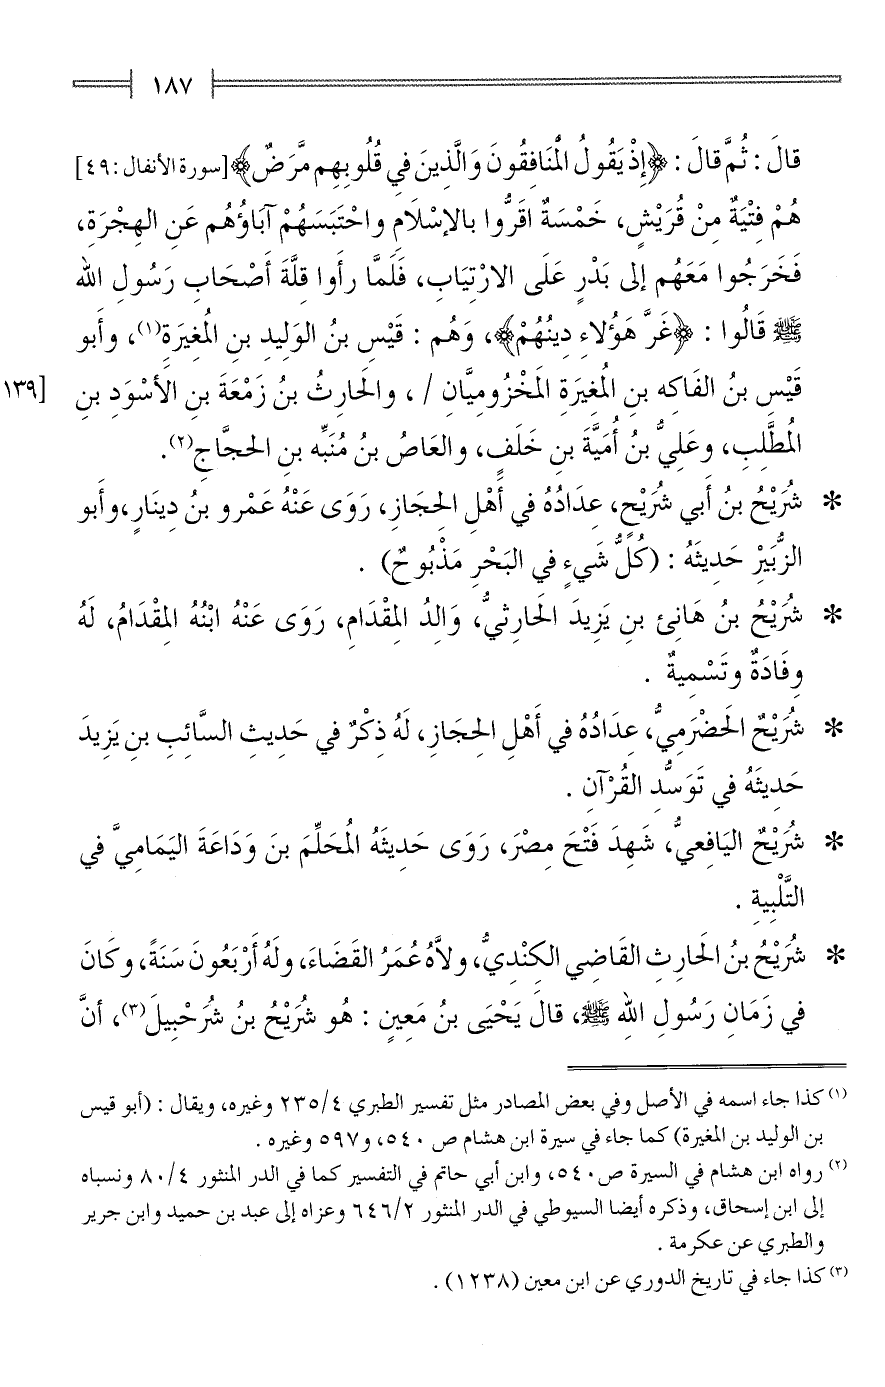 ١٨٧
قالَ : ثُمَّ قالَ : ﴿إِذْ يَقُولُ الْمُنَافِقُونَ وَالَّذِينَ فِي قُلُوبِهِم مَّرَضٌ﴾ [سورة الأنفال : ٤٩]
هُمْ فِتْيَةٌ مِنْ قُرَيْشٍ، خَمْسَةٌ اقَرُّوا بالإسْلَامِ واحْتَبَسَهُمْ آبَاؤُهُم عَنِ الهِجْرَةِ،
فَخَرَجُوا مَعَهُم إلى بَدْرٍ عَلَى الارْتِيَابِ، فَلَمَّا رأَوا قِلَّةَ أَصْحَابِ رَسُولِ الله
ﷺ قَالُوا : ﴿غَرَّ هَؤُلَاءِ دِينُهُمْ﴾، وَهُم : قَيْسِ بنُ الوَلِيدِ بنِ المُغِيرَةِ(١)، وأَبو
قَيْسِ بنُ الفَاكِهِ بنِ المُغِيرَةِ المَخْزُومِيَّانِ / ، والحَارِثُ بنُ زَمْعَةَ بنِ الأسْوَدِ بنِ [١٣٩
المُطَّلِبِ، وعَلِيُّ بنُ أُمَيَّةَ بنِ خَلَفٍ، والعَاصُ بنُ مُنَبِّه بنِ الحجَّاجِ(٢).
* شُرَيْحُ بنُ أَبي شُرَيْحٍ، عِدَادُهُ في أَهْلِ الحِجَازِ، رَوَى عَنْهُ عَمْرو بنُ دِينَارٍ، وأَبو
الزُّبَيْرِ حَدِيثَهُ : (كُلُّ شَيءٍ في البَحْرِ مَذْبُوحٌ) .
* شُرَيْحُ بنُ هَانِئ بنِ يَزِيدَ الحَارِثيُّ، وَالِدُ المِقْدَامِ، رَوَى عَنْهُ ابْنُهُ المِقْدَامُ، لَهُ
وِفَادَةٌ وتَسْمِيةٌ .
* شُرَيْحٌ الحَضْرَمِيُّ، عِدَادُهُ في أَهْلِ الحِجَازِ، لَهُ ذِكْرٌ في حَدِيثِ السَّائِبِ بنِ يَزِيدَ
حَدِيثَهُ في تَوَسُّدِ القُرْآنِ .
* شُرَيْحٌ اليَافِعيُّ، شَهِدَ فَتْحَ مِصْرَ، رَوَى حَدِيثَهُ المُحَلِّمَ بنَ وَدَاعَةَ اليَمَامِيَّ في
التَّلْبِيةِ .
* شُرَيْحُ بنُ الحَارِثِ القَاضِي الكِنْدِيُّ، ولاَّهُ عُمَرُ القَضَاءَ، ولَهُ أَرْبَعُونَ سَنَةً، وكَانَ
في زَمَانِ رَسُولِ اللهِ ﷺ، قالَ يَحْيَى بنُ مَعِينٍ : هُو شُرَيْحُ بنُ شُرَحْبِيلَ(٣)، أنَّ
(١) كذا جاء اسمه في الأصل وفي بعض المصادر مثل تفسير الطبري ٢٣٥/٤ وغيره، ويقال : (أبو قيس
بن الوليد بن المغيرة) كما جاء في سيرة ابن هشام ص ٥٤٠، و٥٩٧ وغيره .
(٢) رواه ابن هشام في السيرة ص٥٤٠، وابن أبي حاتم في التفسير كما في الدر المنثور ٨٠/٤ ونسباه
إلى ابن إسحاق، وذكره أيضا السيوطي في الدر المنثور ٦٤٦/٢ وعزاه إلى عبد بن حميد وابن جرير
والطبري عن عكرمة .
(٣) كذا جاء في تاريخ الدوري عن ابن معين (١٢٣٨) .